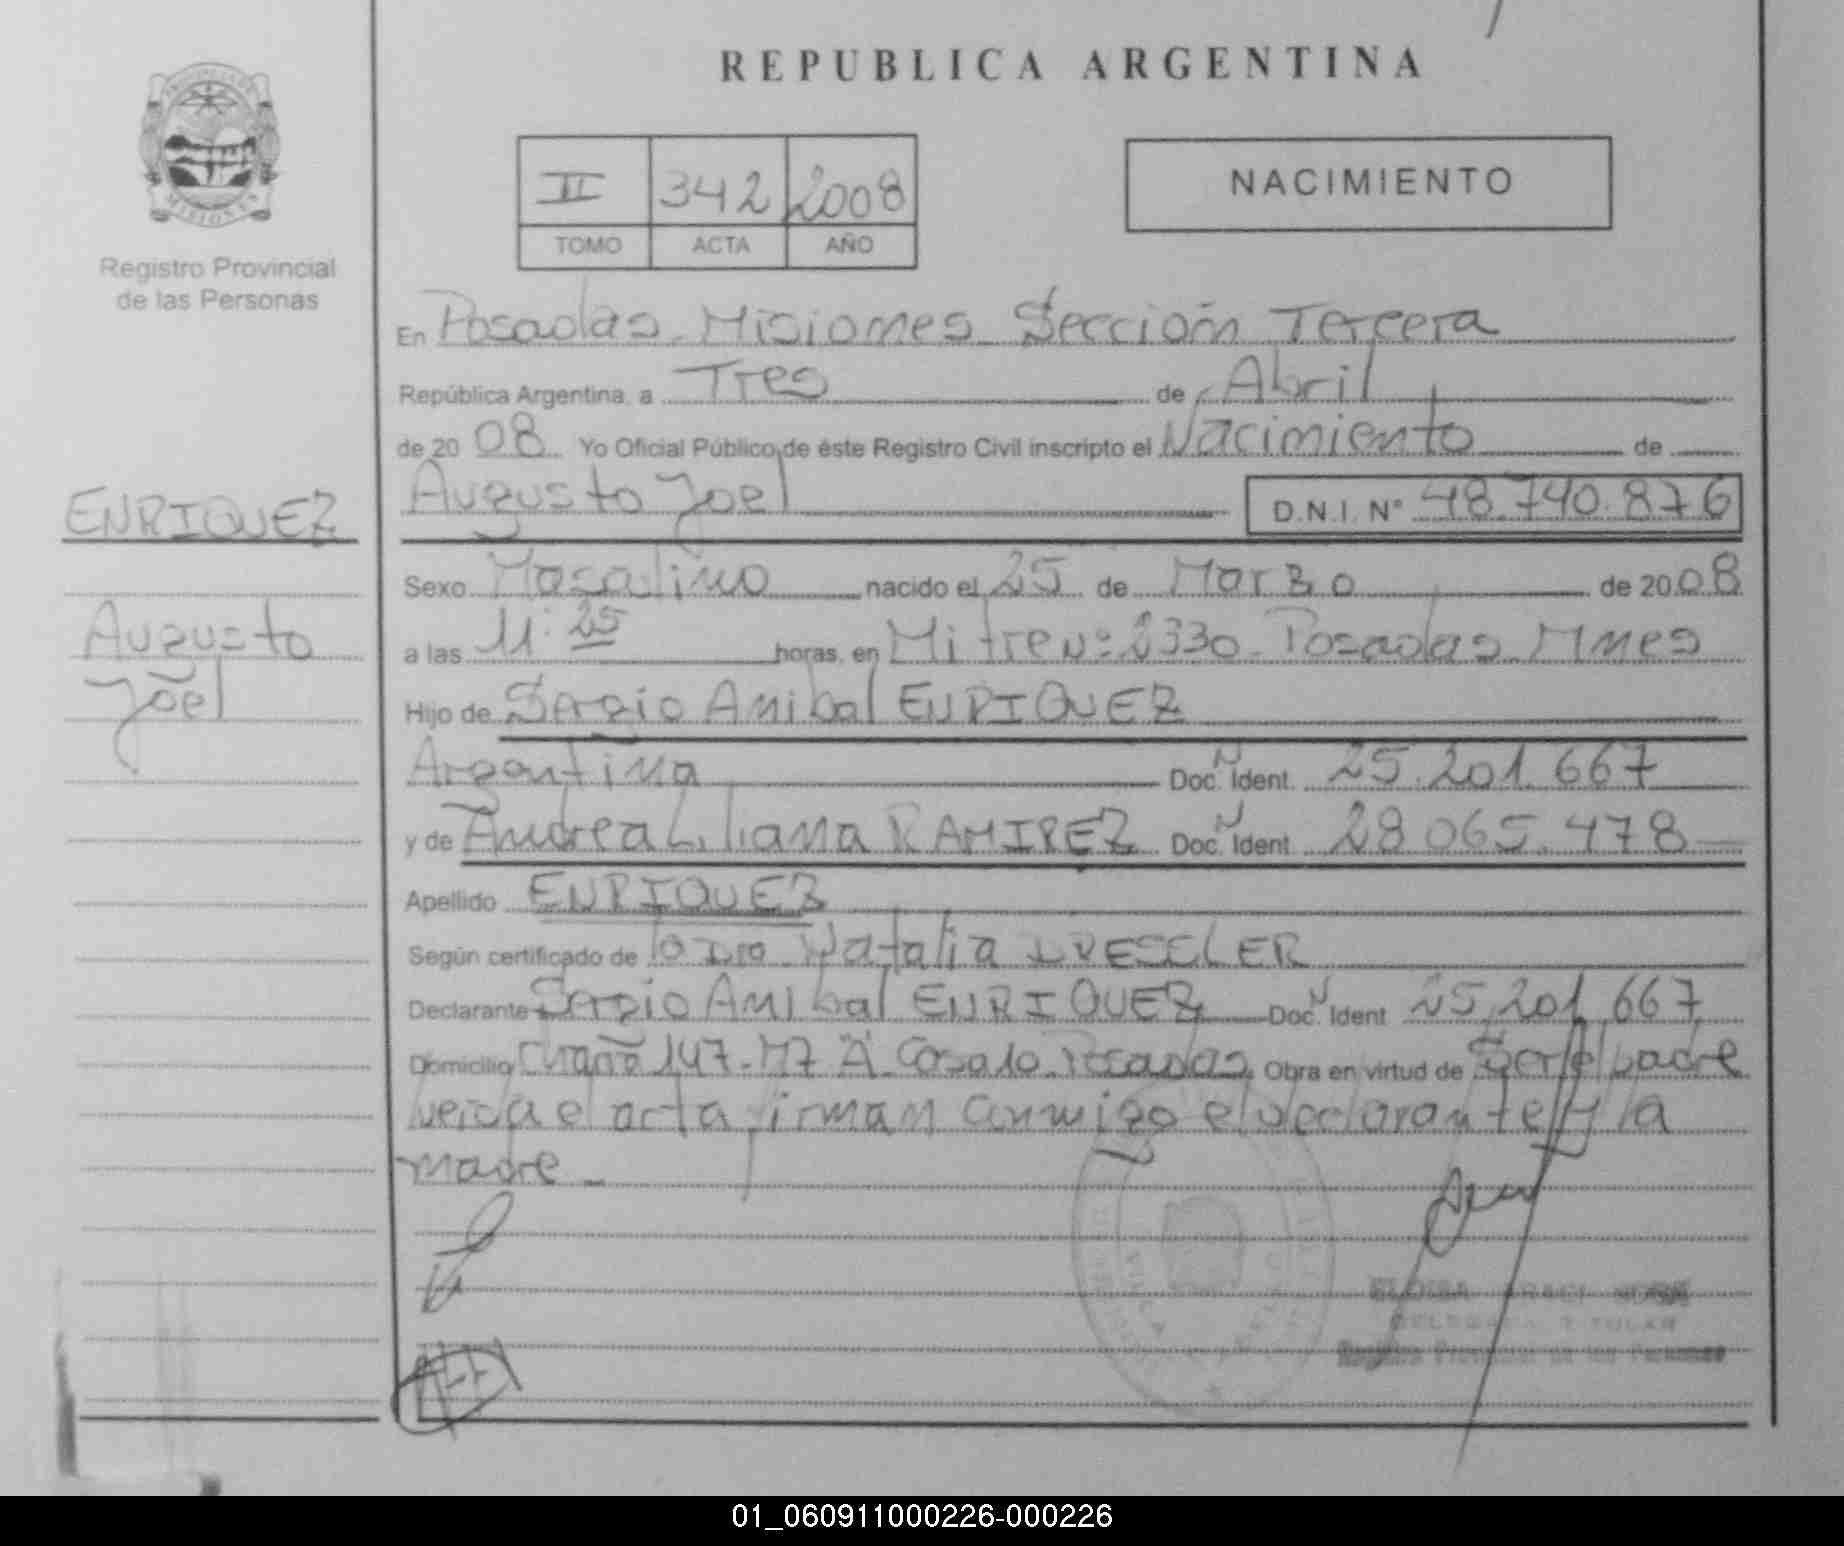 REPUBLICA ARGENTINA
PROVINCIA DE
MISIONES
Registro Provincial
de las Personas
II 342 2008
TOMO ACTA AÑO
NACIMIENTO
En Posadas - Misiones - Sección Tercera
República Argentina, a Tres de Abril
de 20 08 Yo Oficial Público de éste Registro Civil inscripto el Nacimiento de
ENRIQUEZ
Augusto Joel
Augusto Joel D.N.I. N° 48.740.876
Sexo Masculino nacido el 25 de Marzo de 20 08
a las 11:25 horas, en Mitre Nº 2330 - Posadas - Mnes
Hijo de Sergio Anibal ENRIQUEZ
Argentina Doc. N Ident. 25.201.667
y de Andrea Liliana RAMIREZ Doc. N Ident 28.065.478
Apellido ENRIQUEZ
Según certificado de la Dra. Natalia DRESSLER
Declarante Sergio Anibal ENRIQUEZ Doc. N Ident 25.201.667
Domicilio 147 - Posadas. Obra en virtud de Ser el padre
leída el acta firman conmigo el declarante y la
madre -
ELOISA ARACI SOSA
DELEGADA TITULAR
Registro Provincial de las Personas
01_060911000226-000226